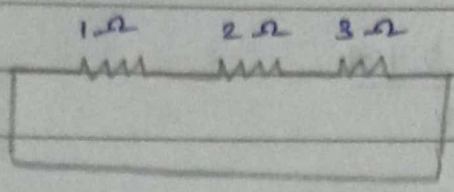 1 Ω 2 Ω 3 Ω